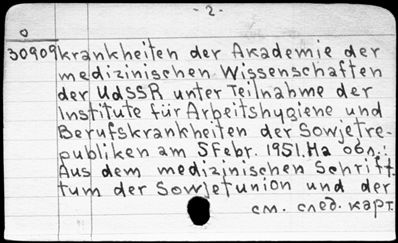 - 2. -
30909 krankheiten der Akademie der
medizinischen Wissenschaften
der UdSSR unter Teilnahme der
Institute für Arbeitshygiene und
Berufskrankheiten der Sowjetre-
publiken am 5 Febr. 1951. На обл.:
Aus dem medizinischen Schrift-
tum der Sowjetunion und der
см. след. карт.